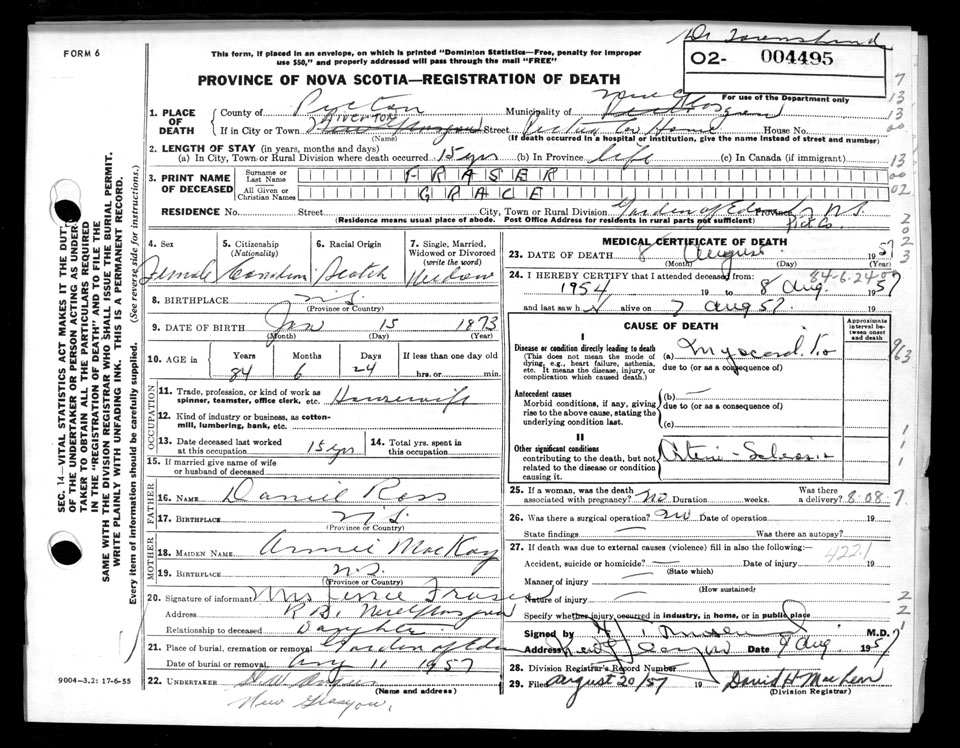 FORM 6
Dr Townshend
This form, if placed in an envelope, on which is printed "Dominion Statistics—Free, penalty for improper
use $50," and properly addressed will pass through the mail "FREE"
O2- 004495
PROVINCE OF NOVA SCOTIA—REGISTRATION OF DEATH
For use of the Department only
1. PLACE OF DEATH
County of Pictou Municipality of New Glasgow
If in City or Town RIVERTON New Glasgow Street Home House No.
(Name) (If death occurred in hospital or institution, give the name instead of street and number)
2. LENGTH OF STAY (in years, months and days)
(a) In City, Town or Rural Division where death occurred 15 yrs (b) In Province life (c) In Canada (if immigrant)
3. PRINT NAME OF DECEASED
Surname or Last Name FRASER
All Given or Christian Names GRACE
RESIDENCE No. Street City, Town or Rural Division Garden of Eden Province N.S.
Pict Co.
(Residence means usual place of abode. Post Office Address for residents in rural parts not sufficient)
4. Sex Female
5. Citizenship (Nationality) Canadian
6. Racial Origin Scotch
7. Single, Married, Widowed or Divorced (write the word) Widow
8. BIRTHPLACE N.S.
(Province or Country)
9. DATE OF BIRTH Jan 15 1873
(Month) (Day) (Year)
10. AGE in Years Months Days If less than one day old
84 6 24 hrs. or min.
OCCUPATION
11. Trade, profession, or kind of work as spinner, teamster, office clerk, etc. Housewife
12. Kind of industry or business, as cotton-mill, lumbering, bank, etc.
13. Date deceased last worked at this occupation 15 yrs
14. Total yrs. spent in this occupation
15. If married give name of wife or husband of deceased
FATHER
16. NAME Daniel Ross
17. BIRTHPLACE N.S.
(Province or Country)
MOTHER
18. MAIDEN NAME Annie MacKay
19. BIRTHPLACE N.S.
(Province or Country)
20. Signature of informant Mrs Fraser
Address New Glasgow
Relationship to deceased Daughter
21. Place of burial, cremation or removal Garden of Eden
Date of burial or removal Aug 11 1957
22. UNDERTAKER
New Glasgow,
(Name and address)
9004-3.2: 17-6-55
MEDICAL CERTIFICATE OF DEATH
23. DATE OF DEATH 8 August 1957
(Month) (Day) (Year)
84-6-24
24. I HEREBY CERTIFY that I attended deceased from:
1954 to 8 Aug 1957
and last saw h alive on 7 Aug 57 19
CAUSE OF DEATH
Approximate interval between onset and death
I
Disease or condition directly leading to death
(This does not mean the mode of dying, e.g., heart failure, asthenia, etc. It means the disease, injury, or complication which caused death.)
(a)
due to (or as a consequence of)
Antecedent causes
Morbid conditions, if any, giving rise to the above cause, stating the underlying condition last.
(b) —
due to (or as a consequence of)
(c)
II
Other significant conditions
contributing to the death, but not related to the disease or condition causing it.
25. If a woman, was the death associated with pregnancy? No Duration weeks. Was there a delivery? 8-08-7
26. Was there a surgical operation? No Date of operation 19
State findings — Was there an autopsy?
27. If death was due to external causes (violence) fill in also the following:— 422.1
Accident, suicide or homicide? — Date of injury 19
(State which)
Manner of injury —
(How sustained)
Nature of injury —
Specify whether injury occurred in industry, in home, or in public place
Signed by M.D.
Address New Glasgow Date 8 Aug. 1957
28. Division Registrar's Record Number
29. Filed August 20/57 19 David H MacLean
(Division Registrar)
SEC. 14—VITAL STATISTICS ACT MAKES IT THE DUTY
OF THE UNDERTAKER OR PERSON ACTING AS UNDER-
TAKER TO OBTAIN ALL THE PARTICULARS REQUIRED
IN THE "REGISTRATION OF DEATH" AND TO FILE THE
SAME WITH THE DIVISION REGISTRAR WHO SHALL ISSUE THE BURIAL PERMIT.
WRITE PLAINLY WITH UNFADING INK. THIS IS A PERMANENT RECORD.
Every item of information should be carefully supplied. (See reverse side for instructions.)